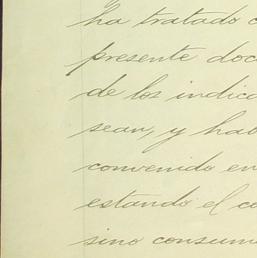 ha tratado
presente doc
de los indica
sean, y hab
convenido en
estando el co
sino consum